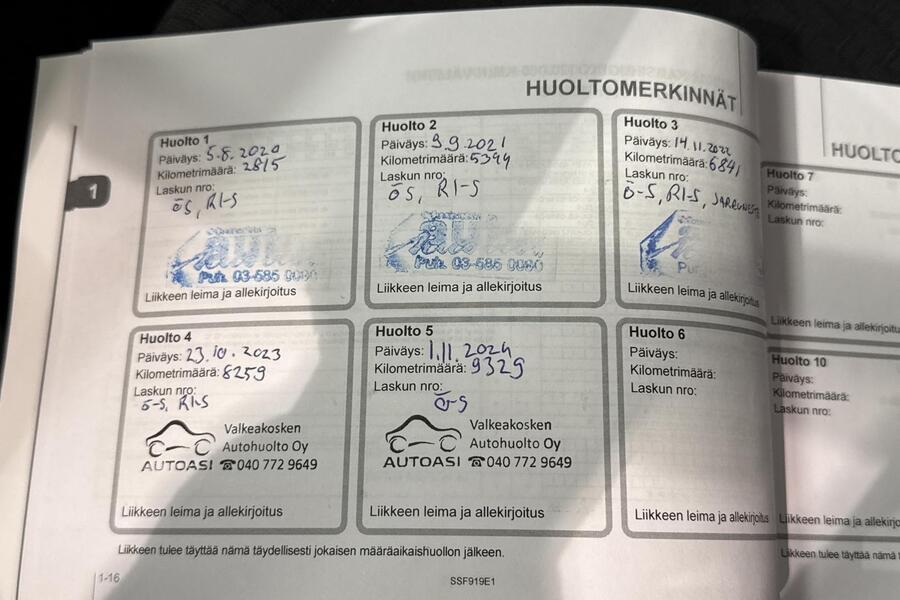 HUOLTOMERKINNÄT
1
Huolto 1
Päiväys: 5.8.2020
Kilometrimäärä: 2815
Laskun nro:
ös, RI-S
Puh. 03-585
Liikkeen leima ja allekirjoitus
Huolto 2
Päiväys: 9.9.2021
Kilometrimäärä: 5394
Laskun nro:
ös, RI-S
Puh. 03-585
Liikkeen leima ja allekirjoitus
Huolto 3
Päiväys: 14.11.2022
Kilometrimäärä: 6841
Laskun nro:
ö-S, RI-S,
Puh
Liikkeen leima ja allekirjoitus
Huolto 4
Päiväys: 23.10.2023
Kilometrimäärä: 8259
Laskun nro:
ö-S, RI-S
Valkeakosken
Autohuolto Oy
AUTOASI ☎040 772 9649
Liikkeen leima ja allekirjoitus
Huolto 5
Päiväys: 1.11.2024
Kilometrimäärä: 9329
Laskun nro:
ö-S
Valkeakosken
Autohuolto Oy
AUTOASI ☎040 772 9649
Liikkeen leima ja allekirjoitus
Huolto 6
Päiväys:
Kilometrimäärä:
Laskun nro:
Liikkeen leima ja allekirjoitus
Liikkeen tulee täyttää nämä täydellisesti jokaisen määräaikaishuollon jälkeen.
1-16
SSF919E1
HUOLTO
Huolto 7
Päiväys:
Kilometrimäärä:
Laskun nro:
Liikkeen leima ja allekirjoitu
Huolto 10
Päiväys:
Kilometrimäärä:
Laskun nro:
Liikkeen leima ja allekirjo
Liikkeen tulee täyttää nämä